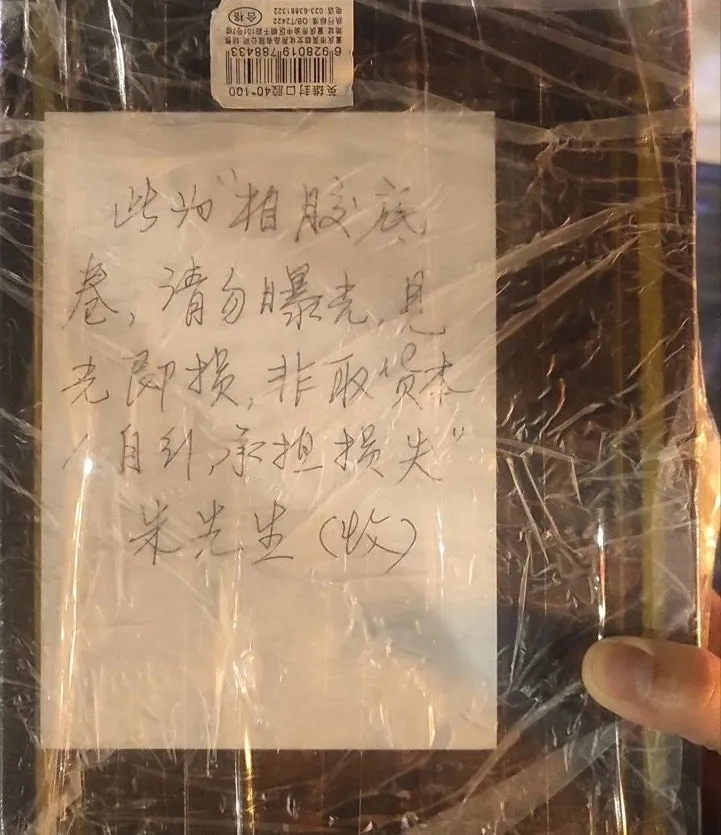 合格
电话: 023-63881322
执行标准: QB/T2422
6928019788433
英雄封口胶40*100
此为“相胶底
卷,请勿曝光,见
光即损,非取货本
人自引,承担损失”
朱先生(收)